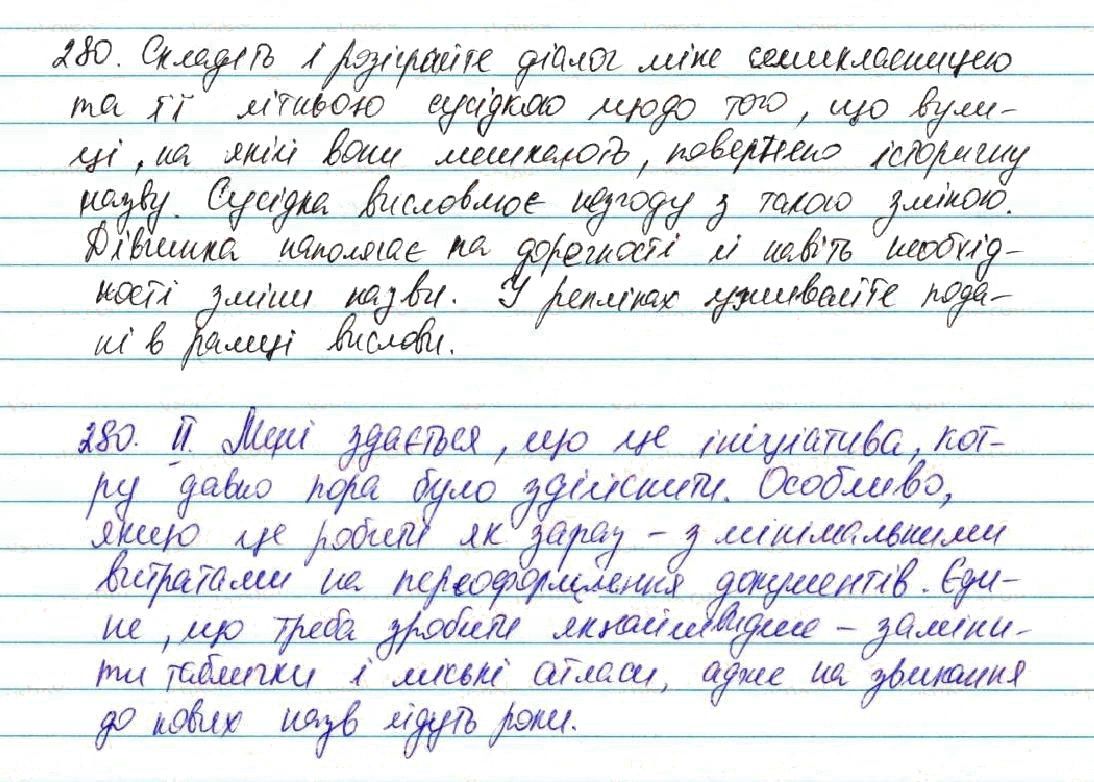 280. Складіть і розіграйте діалог між семикласницею
та її літньою сусідкою щодо того, що вули-
ці, на якій вони мешкають, повернено історичну
назву. Сусідка висловлює незгоду з такою зміною.
Дівчинка наполягає на доречності й навіть необхід-
ності зміни назви. У репліках уживайте пода-
ні в рамці вислови.
280. II. Мені здається, що це ініціатива, кот-
ру давно пора було здійснити. Особливо,
якщо це робити як зараз – з мінімальними
витратами на переоформлення документів. Єди-
не, що треба зробити якнайшвидше – заміни-
ти таблички і міські атласи, адже на звикання
до нових назв підуть роки.